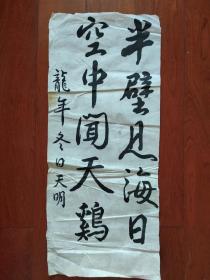 半壁见海日
空中聞天鷄
龍年冬日天明